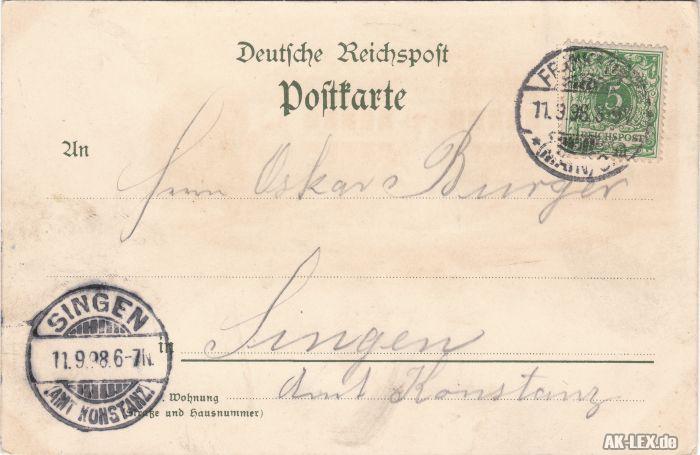 Deutsche Reichspost
Postkarte
5
REICHSPOST
11.9.98.
(MAIN)
An
Herrn Oskar Burger
SINGEN
11.9.98.6-7N.
(AMT KONSTANZ)
in Singen
Amt Konstanz
Wohnung
(Straße und Hausnummer)
AK-LEX.de